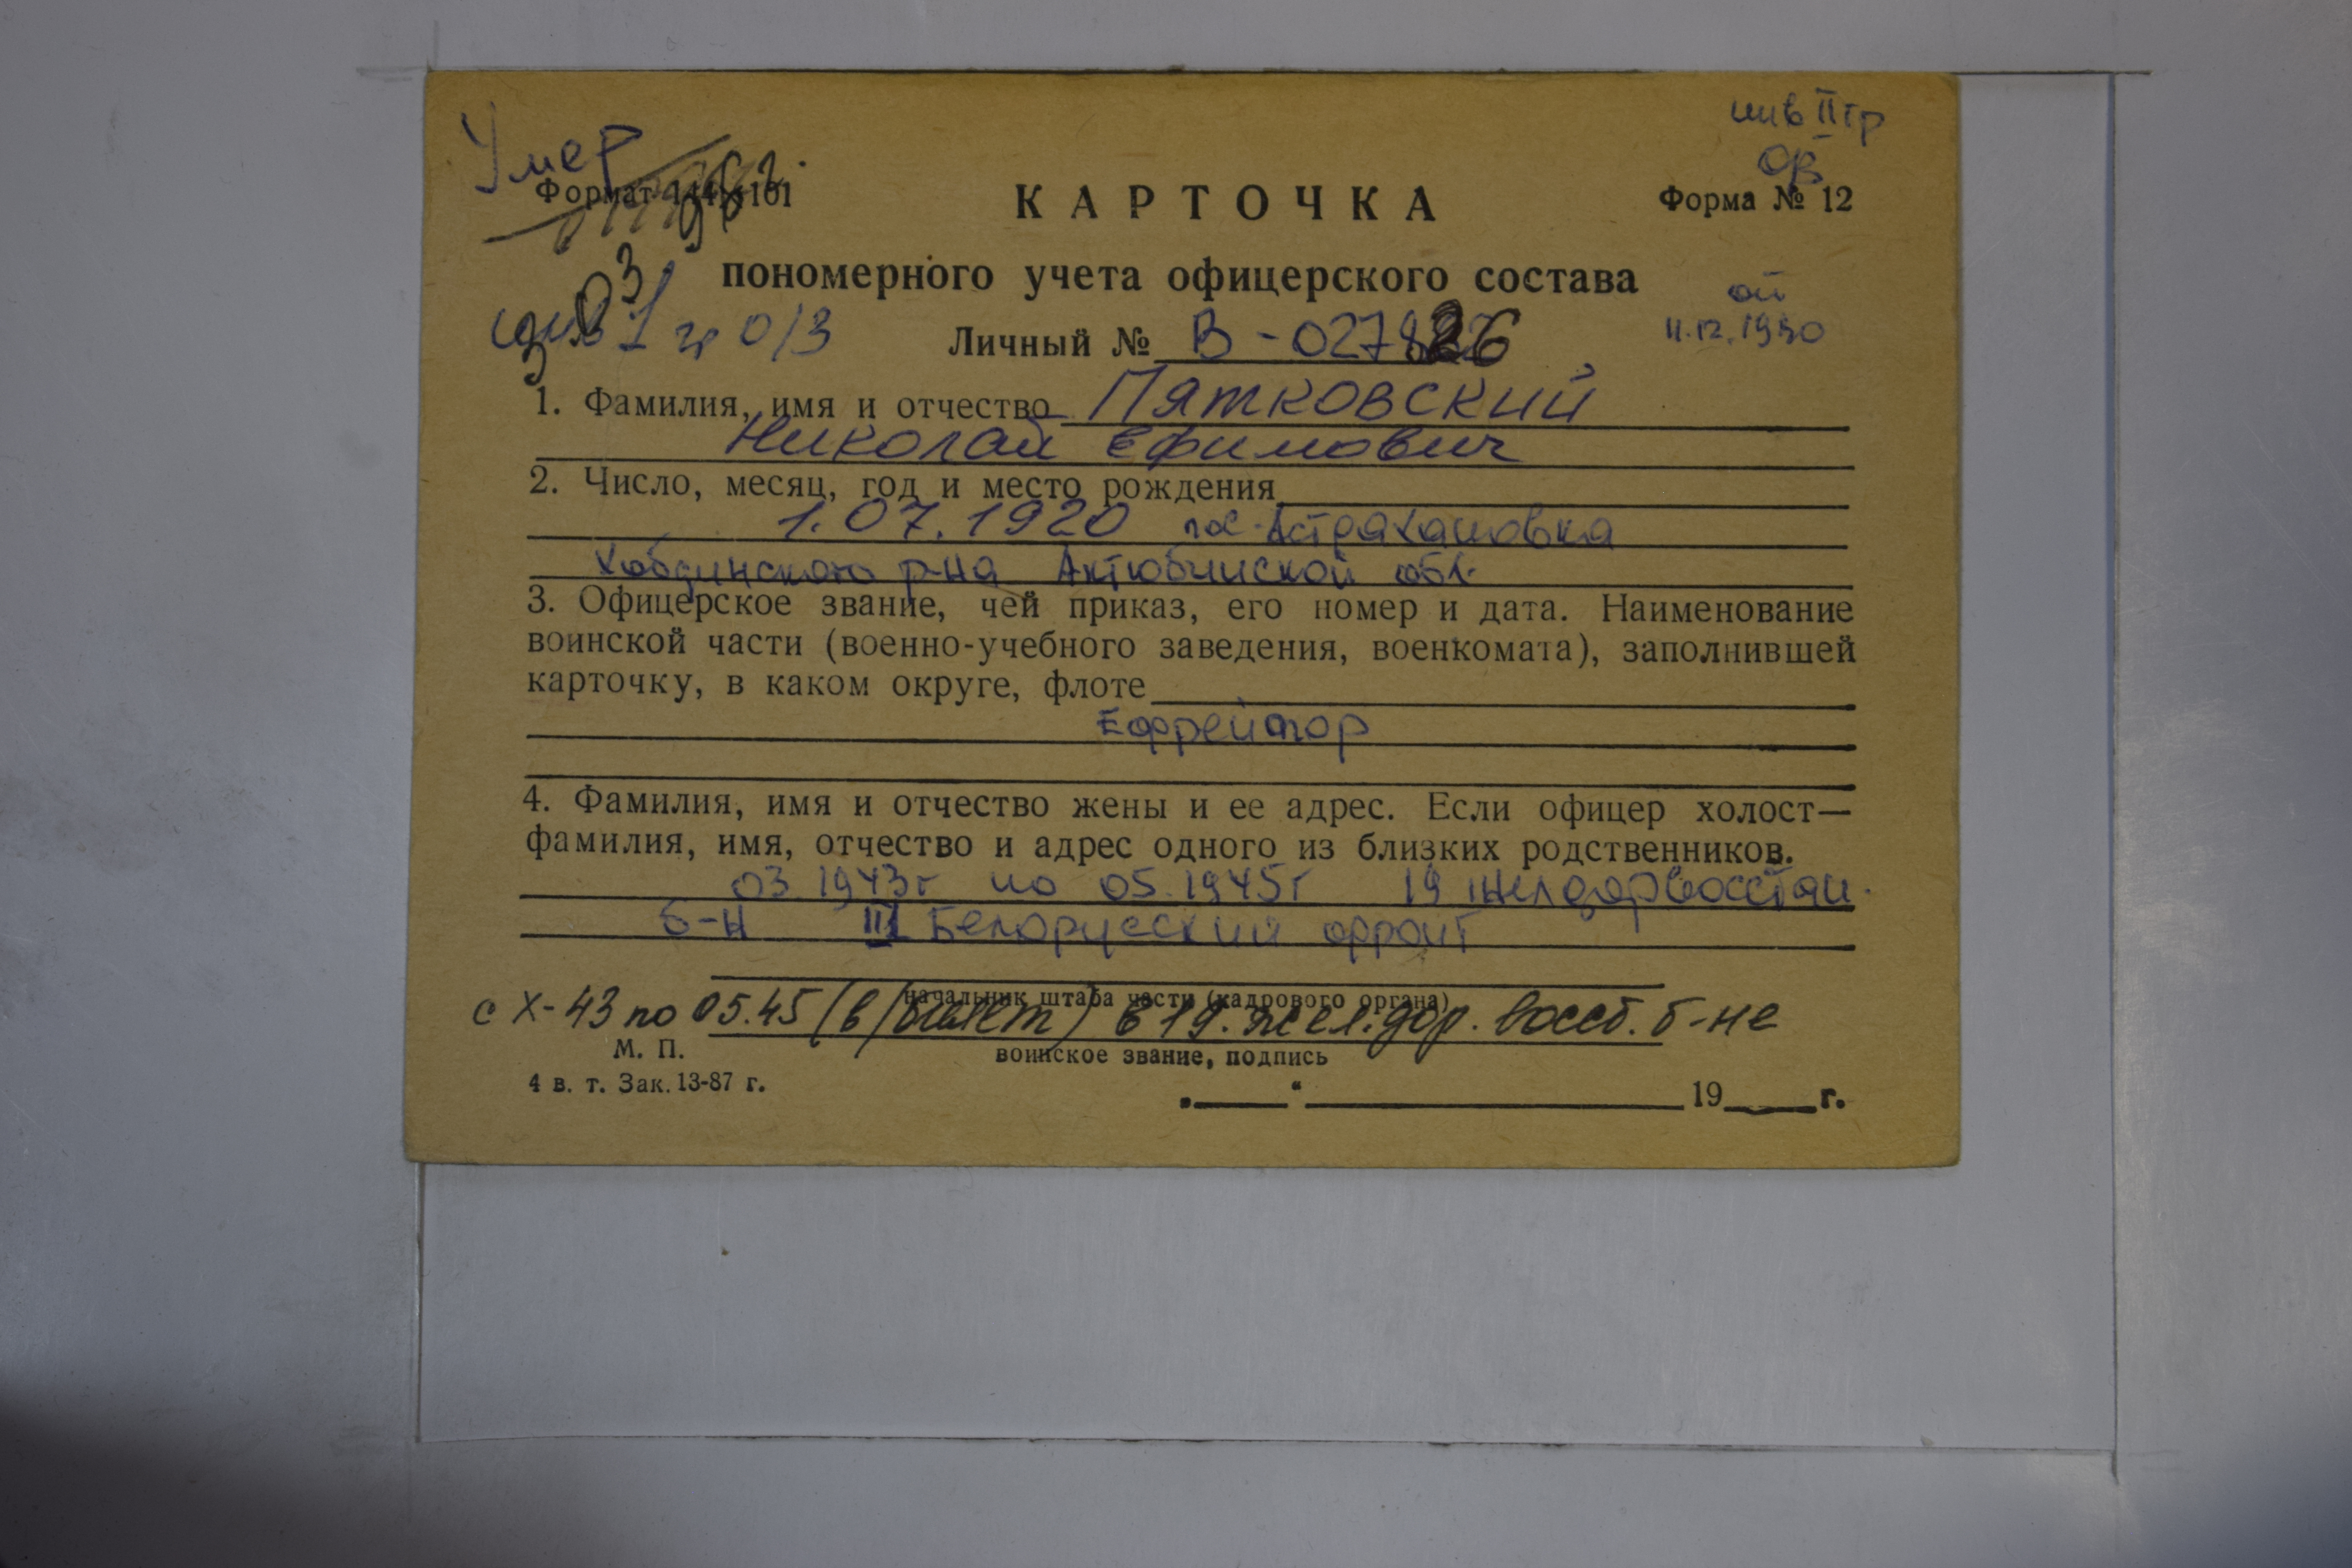 Умер
инв II гр
ОВ
Формат 144×101
КАРТОЧКА
Форма № 12
03
пономерного учета офицерского состава
инв I гр о/з
от
11.12.1980
Личный № В-027826
1. Фамилия, имя и отчество Пятковский
Николай Ефимович
2. Число, месяц, год и место рождения
1.07.1920 пос. Астрахановка
Хобдинского р-на Актюбинской обл.
3. Офицерское звание, чей приказ, его номер и дата. Наименование
воинской части (военно-учебного заведения, военкомата), заполнившей
карточку, в каком округе, флоте
Ефрейтор
4. Фамилия, имя и отчество жены и ее адрес. Если офицер холост—
фамилия, имя, отчество и адрес одного из близких родственников.
03.1943г по 05.1945г 19 желдорвосстан.
б-н III Белорусский фронт
начальник штаба части (кадрового органа)
с X-43 по 05.45 (в/билет) в 19. жел.дор. восст. б-не
М. П.
воинское звание, подпись
4 в. т. Зак. 13-87 г.
„ “ 19 г.